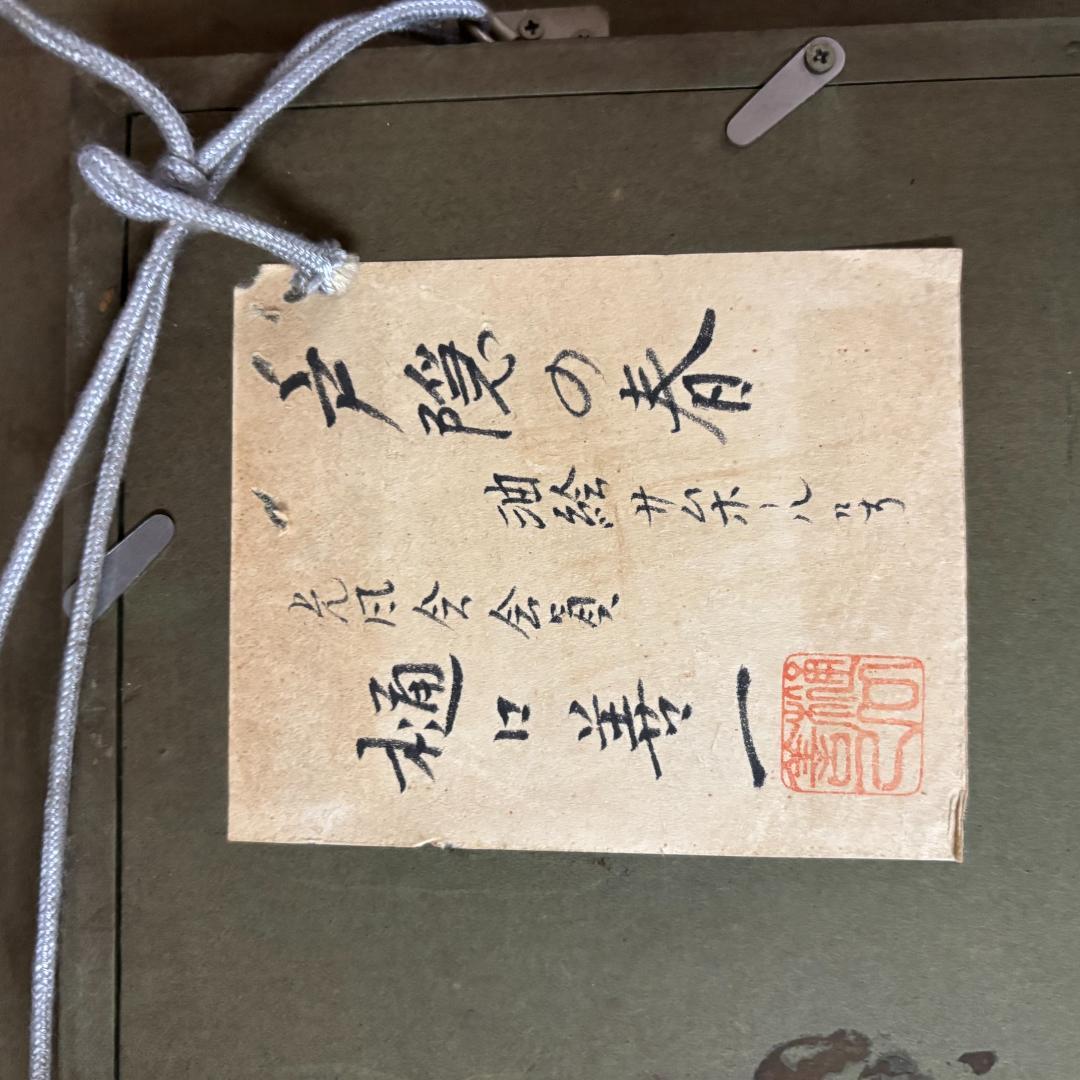 戸隠の春
油絵 サムホール号
光風会会員
樋口善一